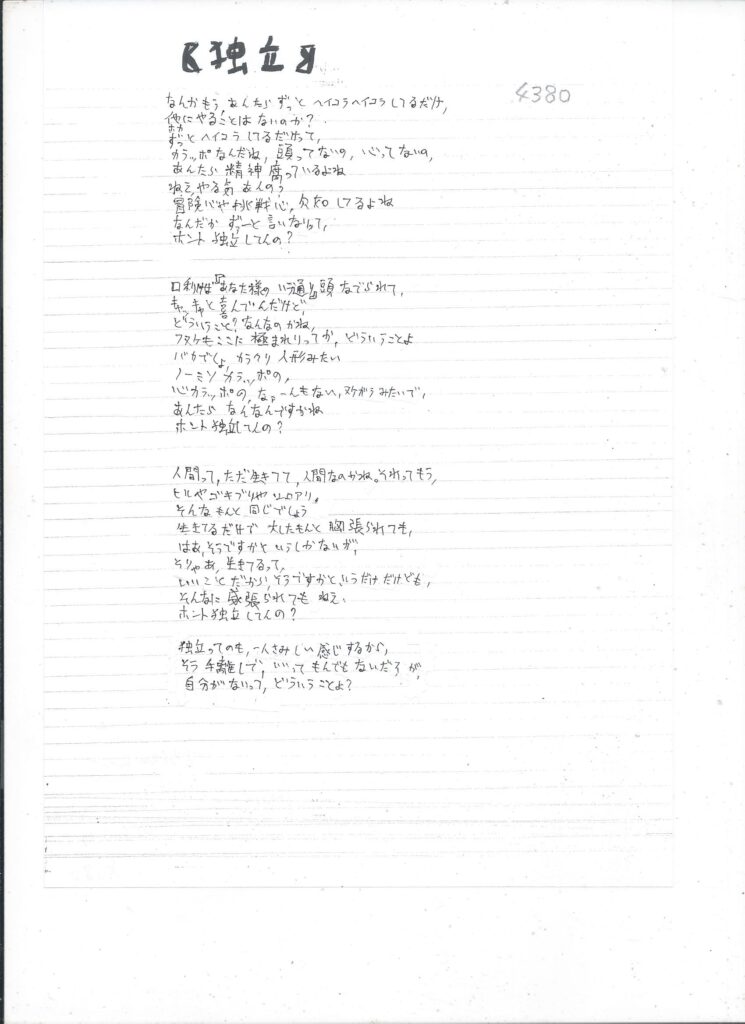 『独立』
4380
なんかもう、あんたらずっとヘイコラヘイコラしてるだけ、
他にやることはないのか?
ホカ
ずっとヘイコラしてるだけって、
カラッポなんだね、頭ってないの、心ってないの、
あんたら精神腐っているよね
ねえ、やる気あんの?
冒険心や挑戦心、欠如してるよね
なんだか ずーっと言いなりって、
ホント独立してんの?
口利けば『あなた様のいう通り』頭なでられて、
キャッキャと喜んでんだけど、
どういうこと?なんなのかね、
フヌケもここに極まれりってか、どういうことよ
バカでしょ、カラクリ人形みたい
ノーミソカラッポの、
心カラッポの、なーんもない、ヌケガラみたいで、
あんたらなんなんですかね
ホント独立してんの?
人間って、ただ生きてて、人間なのかね。それってもう、
ヒルやゴキブリやシロアリ。
そんなもんと同じでしょう
生きてるだけで大したもんと胸張られても、
はあ、そうですかというしかないが、
そりゃあ、生きてるって、
いいことだから、そうですかというだけだけども、
そんなに 張られてもねえ、
ホント独立してんの?
独立ってのも、一人さみしい感じするから、
そう手離しで、いいってもんでもないだろが、
自分がないって、どういうことよ?